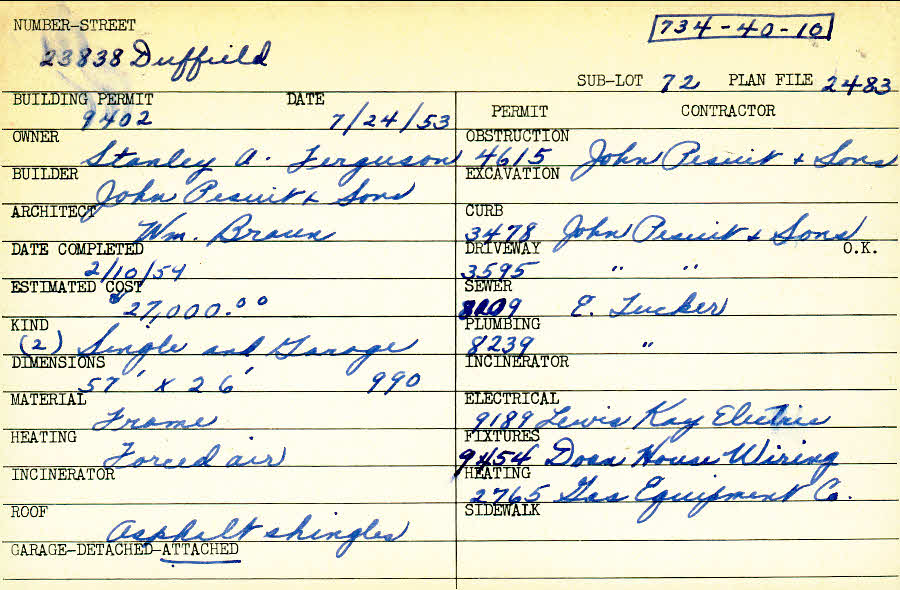 NUMBER-STREET
734-40-10
23838 Duffield
SUB-LOT 72 PLAN FILE 2483
BUILDING PERMIT DATE
9402 7/24/53
OWNER
Stanley A. Ferguson
BUILDER
John Pesuit & Sons
ARCHITECT
Wm. Braun
DATE COMPLETED
2/10/54
ESTIMATED COST
$27,000.00
KIND
(2) Single and Garage
DIMENSIONS
57' x 26' 990
MATERIAL
Frame
HEATING
Forced air
INCINERATOR
ROOF
Asphalt shingles
GARAGE-DETACHED-ATTACHED
PERMIT CONTRACTOR
OBSTRUCTION
4615 John Pesuit & Sons
EXCAVATION
CURB
3478 John Pesuit & Sons
DRIVEWAY O.K.
3595 " "
SEWER
8109 E. Tucker
PLUMBING
8239 "
INCINERATOR
ELECTRICAL
9189 Lewis Kay Electric
FIXTURES
9454 Doan House Wiring
HEATING
2765 Gas Equipment Co.
SIDEWALK